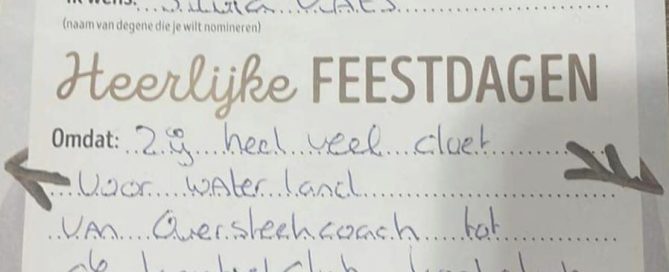 Ik wens:
(naam van degene die je wilt nomineren)
Heerlijke FEESTDAGEN
Omdat: Zij heel veel doet
voor waterland
van Oversteekcoach tot
de